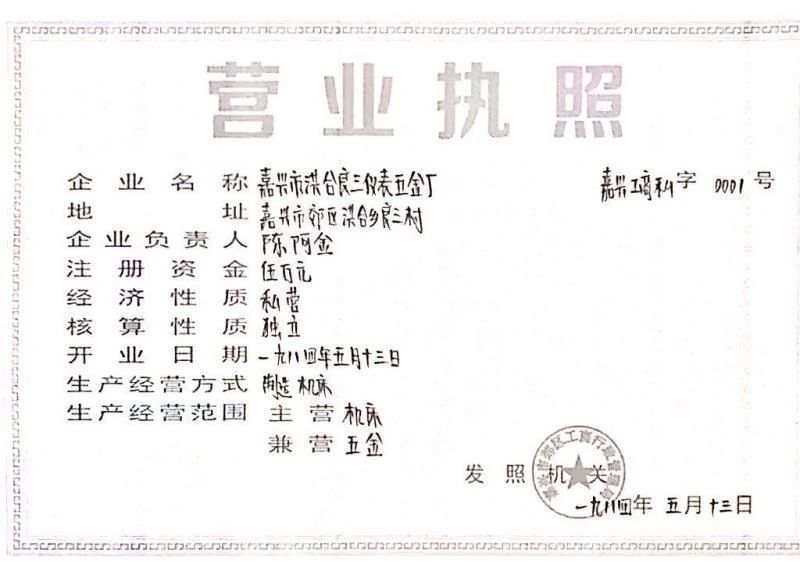 营业执照
企业名称 嘉兴市洪合良三仪表五金厂 嘉兴工商私字 0001 号
地址 嘉兴市郊区洪合乡良三村
企业负责人 陈阿金
注册资金 伍百元
经济性质 私营
核算性质 独立
开业日期 一九八四年五月十三日
生产经营方式 制造 机床
生产经营范围 主营 机床
兼营 五金
发照机关
嘉兴市郊区工商行政管理局
一九八四年 五月十三日